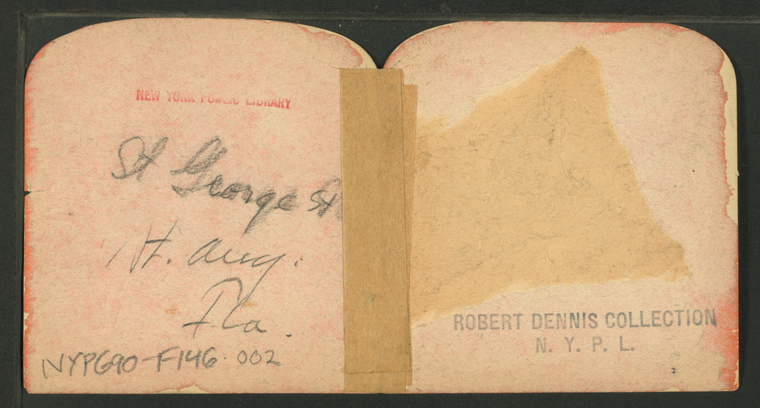 NEW YORK PUBLIC LIBRARY
St George St
St. Aug.
Fla.
NYPG90-F146.002
ROBERT DENNIS COLLECTION
N. Y. P. L.